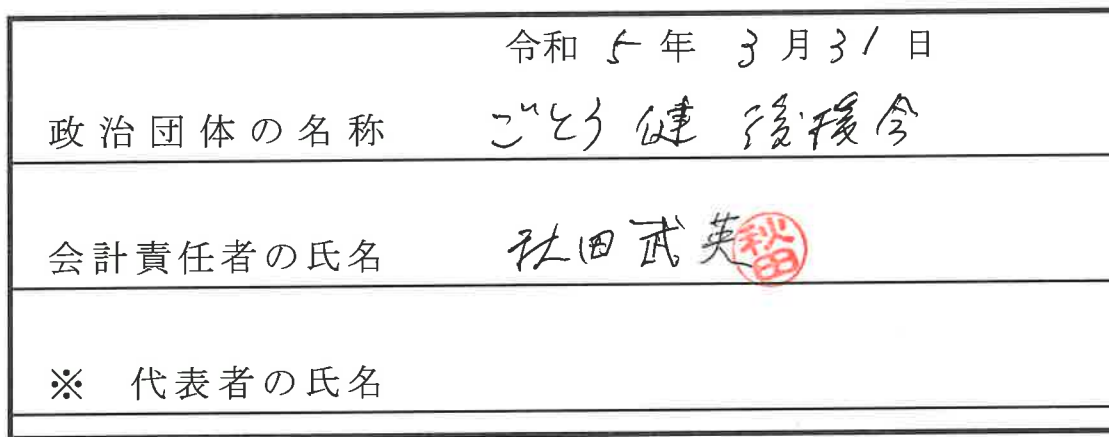 令和 5 年 3 月 31 日
政治団体の名称 ごとう健 後援会
会計責任者の氏名 秋田武英 秋田
※ 代表者の氏名